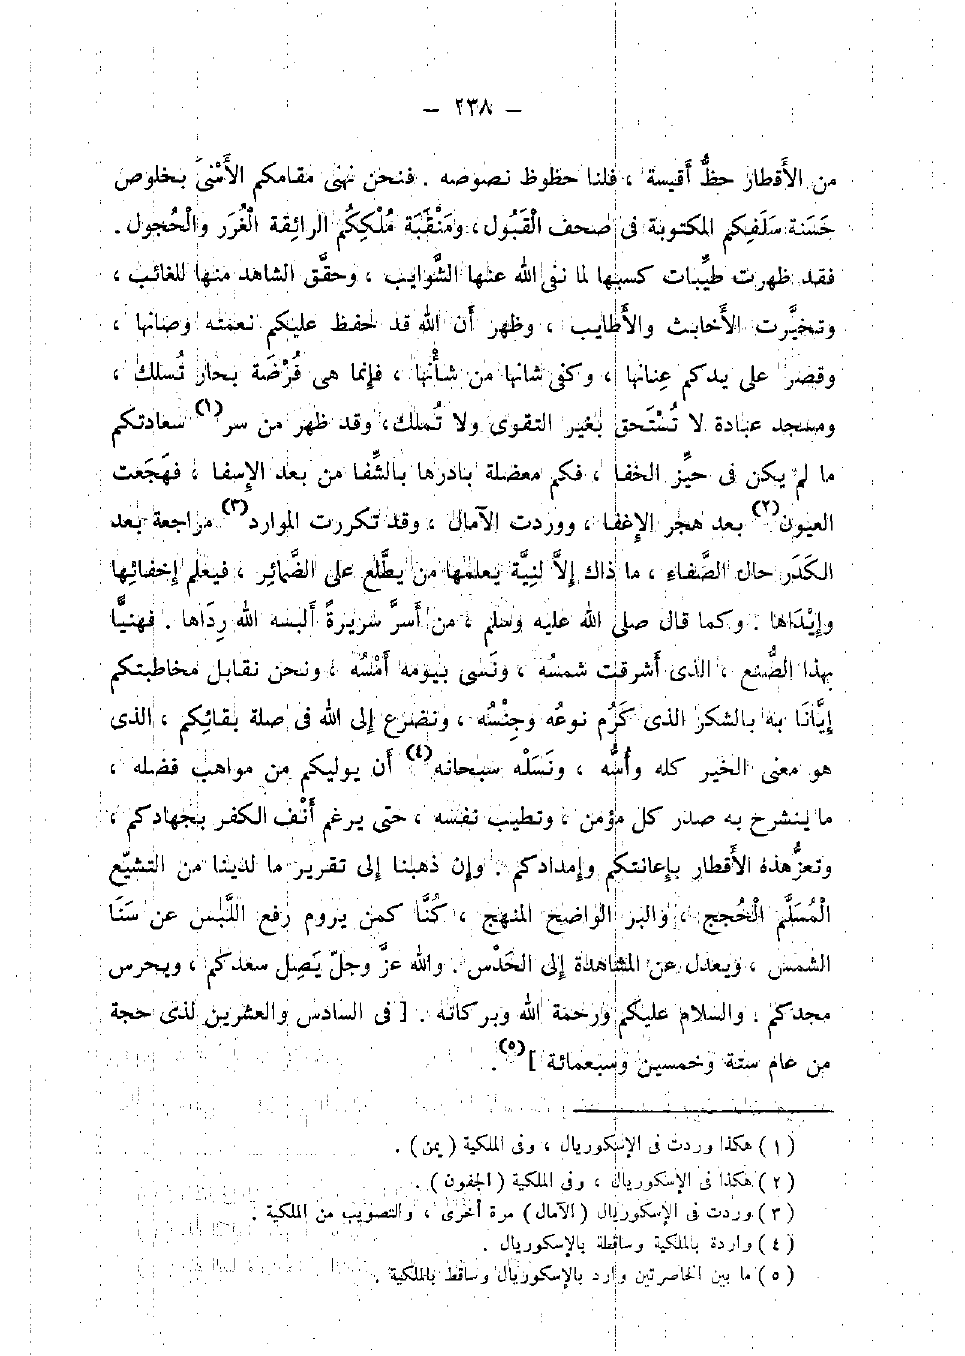 — ٢٣٨ —
من الأقطار حظُّ أقيسة ، فلنا حظوظ نصوصه . فنحن نهنى مقامكم الأَسْنىَ بخلوص
حَسَنة سَلَفِكم المكتوبة فى صحف الْقَبُول ، ومَنْقَبَة مُلْكِكُم الرائِقة الْغُرَر والْحُجول .
فقد ظهرت طيِّبات كسبها لما نفى الله عنها الشَّوايب ، وحقَّق الشاهد منها للغائب ،
وتخيَّرت الأَخابث والأَطايب ، وظهر أَن الله قد حفظ عليكم نعمته وصانها ،
وقصر على يدكم عِنانها ، وكفى شانها من شأْنها ، فإِنما هى فُرْضَة بحار تُسلك ،
ومسجد عبادة لا تُسْتَحق بغير التقوى ولا تُملك، وقد ظهر من سر(١) سعادتكم
ما لم يكن فى حيِّز الخفا ، فكم معضلة بادرها بالشِّفا من بعد الإِسفا ، فهَجَعت
العيون(٢) بعد هجر الإِغفا ، ووردت الآمال ، وقد تكررت الموارد(٣) مراجعة بعد
الكَدَر حال الصَّفاءِ ، ما ذاك إِلاَّ لنِيَّة يعلمها من يطَّلع على الضَّمائِر ، فيعلم إِخفائِها
وإِبْدَاها . وكما قال صلى الله عليه وسلم ، من أَسرَّ سَرِيرةً أَلبسه الله رِدَاها . فهنيًّا
بهذا الصُّنع ، الذى أَشرقت شمسُه ، ونَسى بيومه أَمْسُه ، ونحن نقابل مخاطبتكم
إِيَّانَا به بالشكر الذى كَرُم نوعُه وجِنْسُه ، ونضرع إِلى الله فى صلة بقائِكم ، الذى
هو معنى الخير كله وأُسُّه ، ونَسَلْه سبحانه(٤) أَن يوليكم من مواهب فضله ،
ما ينشرح به صدر كل مؤمن ، وتطيب نفسه ، حتى يرغم أَنْف الكفر بجهادكم ،
وتعزُّ هذه الأَقطار بإِعانتكم وإِمدادكم . وإِن ذهبنا إِلى تقرير ما لدينا من التشيّع
الْمُسَلَّم الْحُجج ، والبر الواضح المنهج ، كُنَّا كمن يروم رفع اللَّبْس عن سَنَا
الشمس ، ويعدل عن المشاهدة إِلى الحَدْس . والله عزَّ وجلّ يَصِل سعدكم ، ويحرس
مجدكم . والسلام عليكم ورحمة الله وبركاته . [ فى السادس والعشرين لذى حجة
من عام ستة وخمسين وسبعمائة ](٥).
(١) هكذا وردت فى الإسكوريال ، وفى الملكية ( يمن ) .
(٢) هكذا فى الإسكوريال ، وفى الملكية ( الجفون ) .
(٣) وردت فى الإسكوريال ( الآمال ) مرة أخرى ، والتصويب من الملكية .
(٤) واردة بالملكية وساقطة بالإسكوريال .
(٥) ما بين الخاصرتين وارد بالإسكوريال وساقط بالملكية .